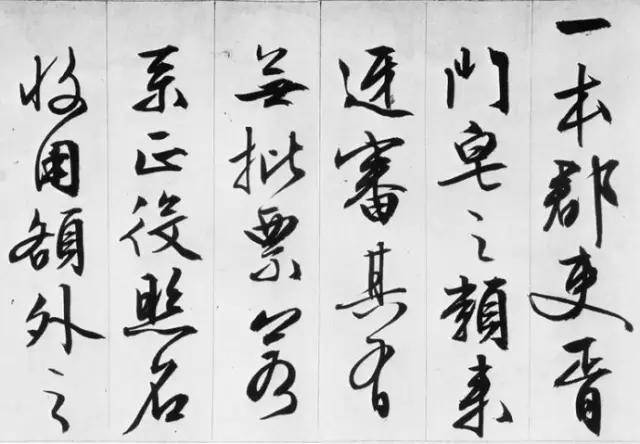 一本郡吏胥
門皂之類来
迓審其有
無批票若
系正役照名
收用額外之